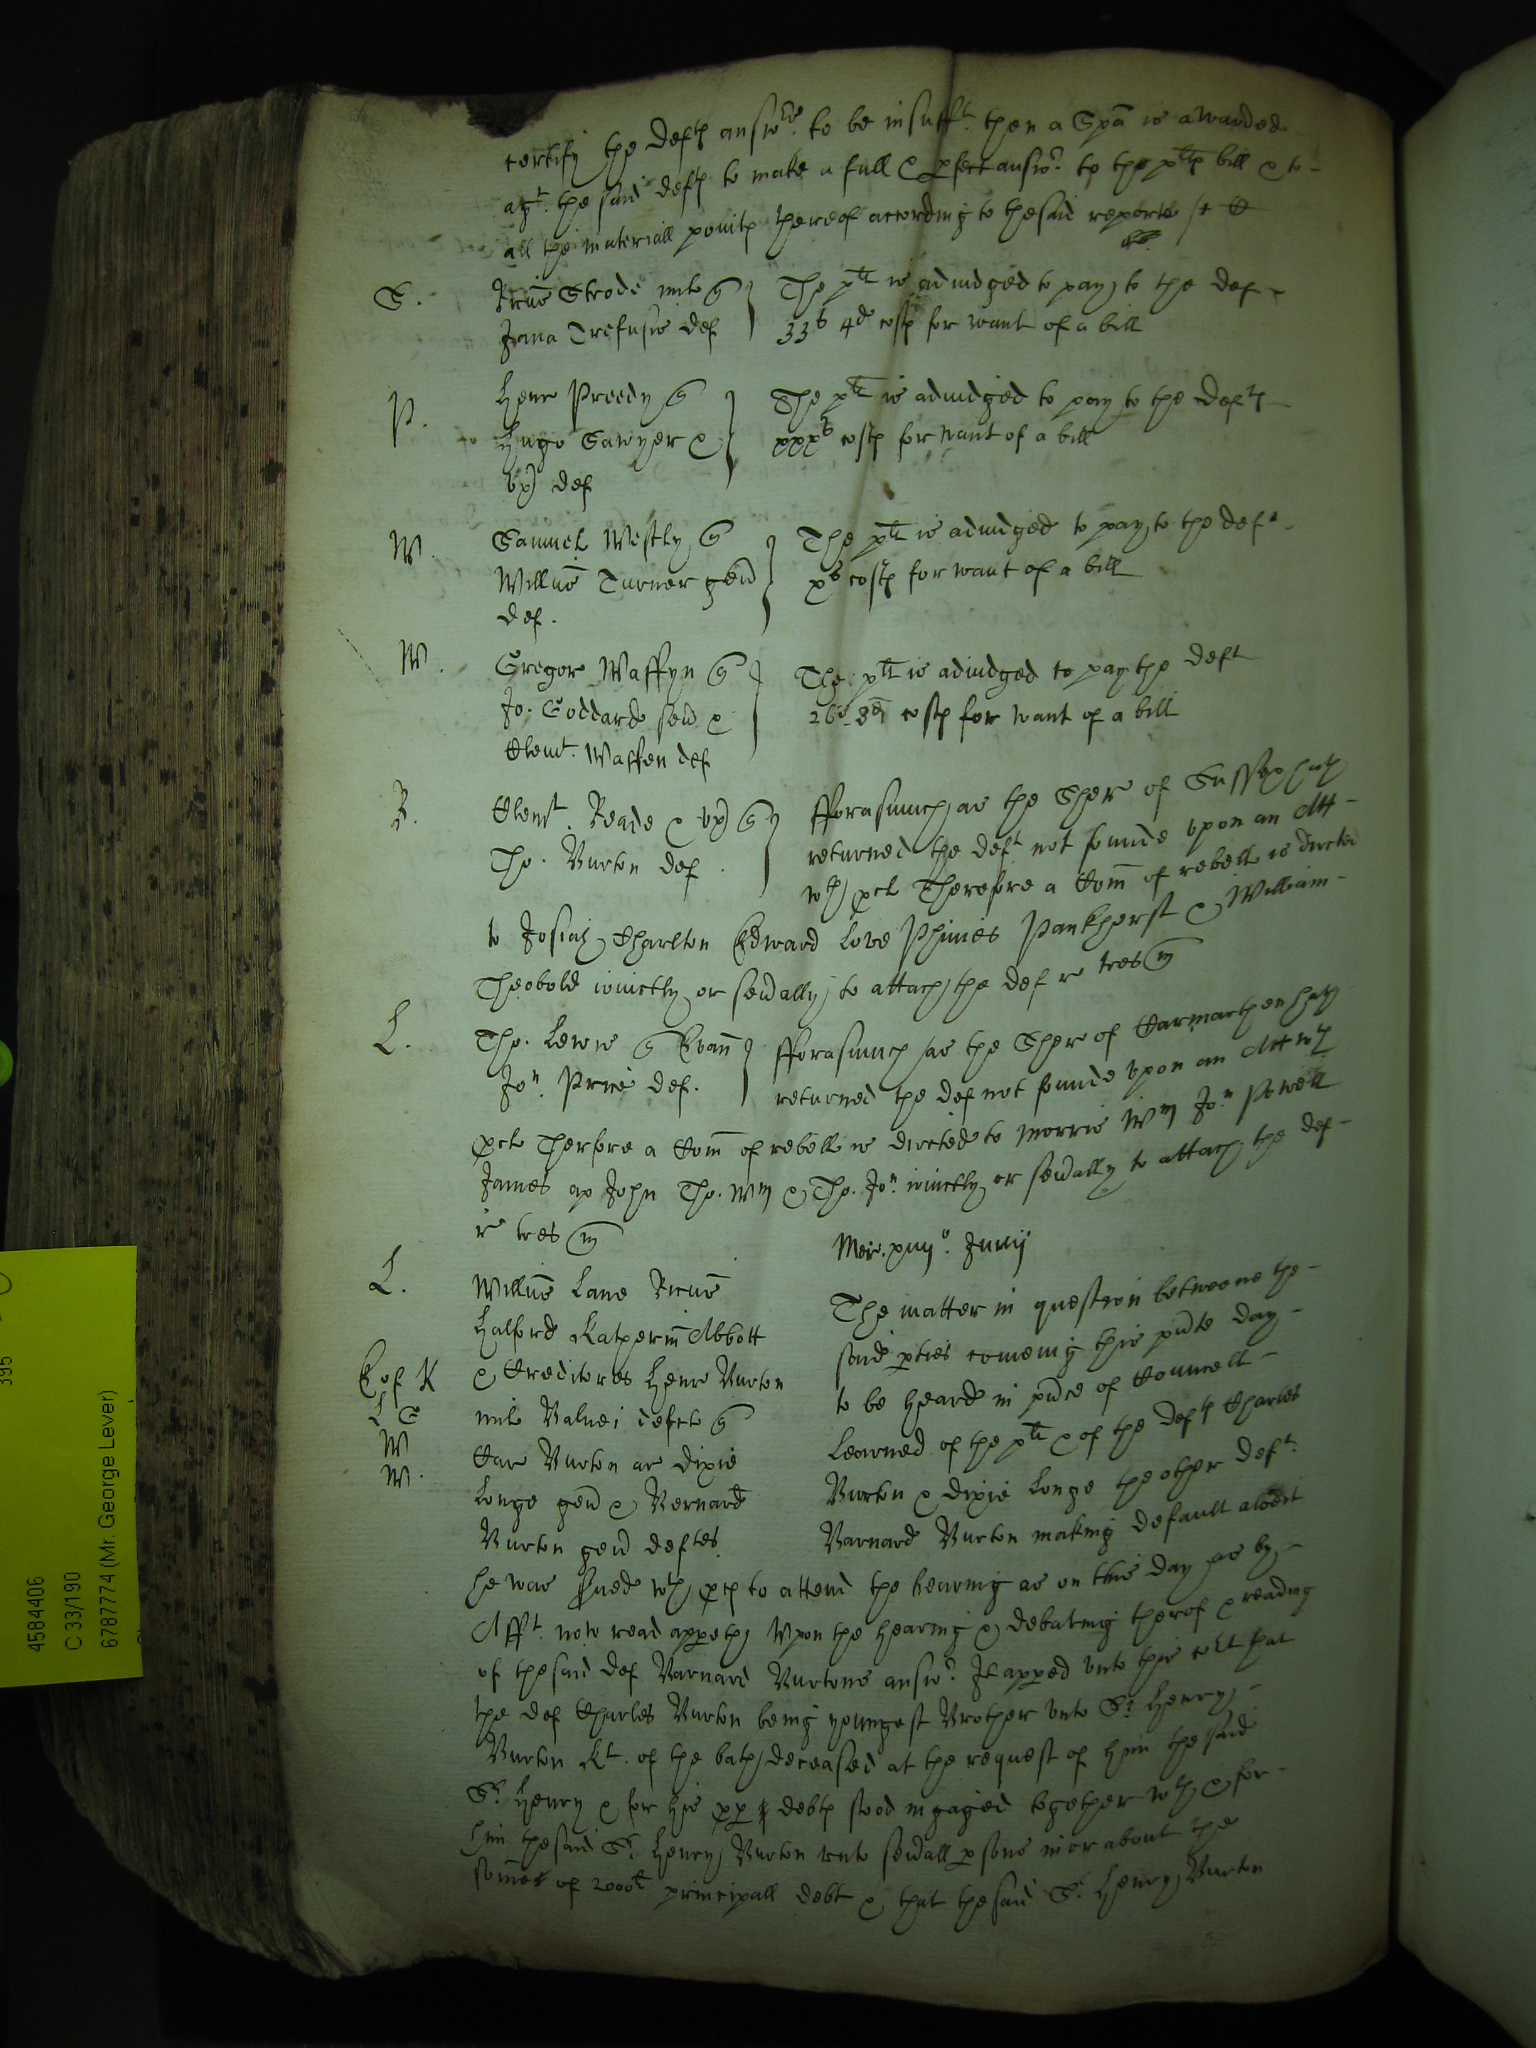 certify the deftς answere. to be insufft. then a Spā is awarded
agt. the said deftς to make a full & pfect answr. to the pltς bill & to
all the materiall pointς thereof according to the said reporte
S. Ricūs Strode milts q
Jona Trefusis def
The plt is adiudged to pay to the def
33s 4d costς for want of a bill
P. Henr Preedy q
Hugo Sawyer &
vx def
The plt is adiudged to pay to the deftς
xxxs costς for want of a bill
W. Samuel Westly q
Willūs Turner geñ
def.
The plt is adiudged to pay to the deft
xs costς for want of a bill
W. Gregor Waffyn q
Jo. Goddard señ &
Clemt. Waffen def
The plt is adiudged to pay the deft
26s 8d costς for want of a bill
R. Clemt. Reade & vx q
Tho. Burton def.
fforasmuch as the Sher of Sussex hath
returned the deft not founde vpon an Att
wth pcl Therefore a Com̄ of rebell is directed
to Josiah Charlton Edward Love Phines Pankherst & William
Theobold iointly or seũally to attach the def re tres m
L. Tho. Lewis q Evan
Jon. Price def.
fforasmuch as the Sher of Carmarthen hath
returned the def not founde vpon an Att wth
pcls Therfore a Com̄ of rebell is directed to Morris Wm Jon Powell
James ap John Tho. Wm & Tho. Jon. iointly or seũally to attach the def
re tres m
Mer. xiiijo. Junij
L. Willūs Lane Ricūs
Halford Katherin Abbott
& Creditores Henr Burton
milts Balnei defcts q
Car Burton ar Dixie
Longe geñ & Bernard
Burton geñ deftes.
E of K
L S
W
W.
The matter in question betweene the
said pties comeing this pñte day
to be heard in pñce of Councell
Learned of the plt & of the deftς Charles
Burton & Dixie Longe the other deft.
Barnard Burton making default albeit
he was sued wth pcς to attend the hearing as on this day as by
Afft. now read appeth Vpon the hearing & debating therof & reading
of the said def Barnard Burtons answr. It apped vnto this colt that
the def Charles Burton being youngest Brother vnto Sr. Henry
Burton Kt. of the bath deceased at the request of him the said
Sr. Henry & for his pp debtς stood ingaged together wth & for
him the said Sr. Henry Burton vnto seũall psons in or about the
some of 2000lt principall debt & that the said Sr. Henry Burton
4584406
C 33/190
6787774 (Mr. George Lever)
395